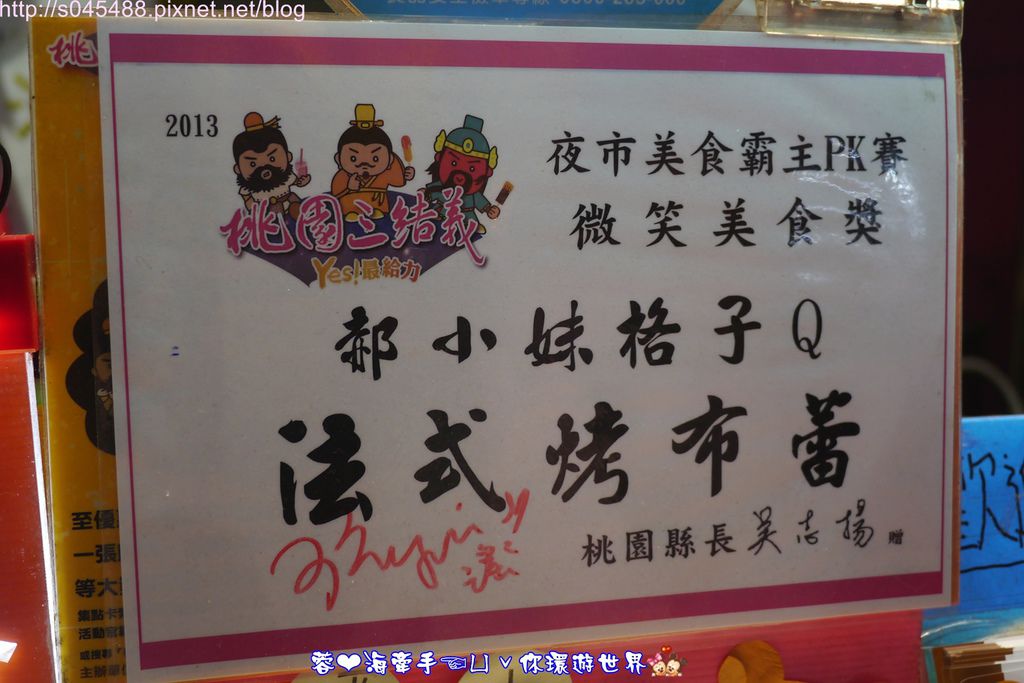 http://s045488.pixnet.net/blog
桃
2013
夜市美食霸主PK賽
微笑美食獎
桃園三結義
Yes!最給力
郝小妹格子Q
法式烤布蕾
桃園縣長吳志揚 贈
至優
一張
等大
集點卡
活動
主辦單
蓉❤海牽手☜凵ˇ 你環遊世界